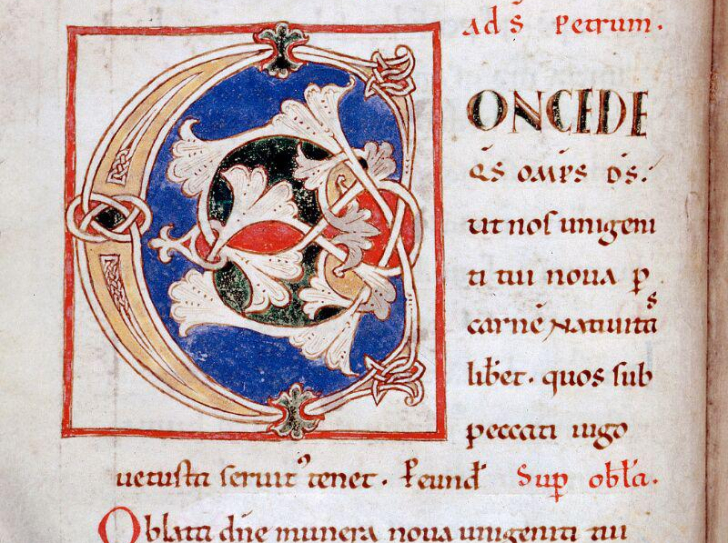 ad S̄ Petrum.
CONCEDE
q̄s om̄ps d̄s.
ut nos unigeni
ti tui noua ꝑ
carnē natiuitaˢ
lib̄et. quos sub
peccati iugo
uetusta seruit᾿ tenet. ꝑ eund̄ Suꝑ obl̄a.
Oblata dn̄e munera noua unigeniti tui